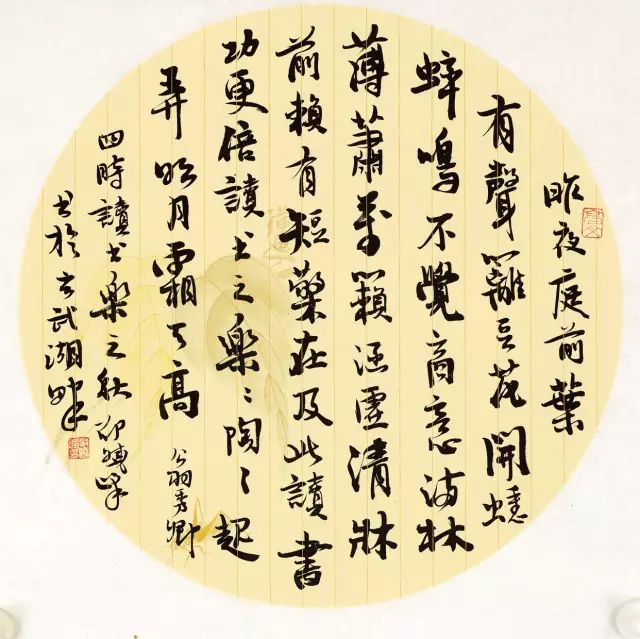 昨夜庭前葉
有聲籬豆花開蟋
蟀鳴不覺商意滿林
薄蕭萬籟涵虛清牀
前賴有短檠在及此讀書
功更倍讀书之樂〻陶〻起
弄明月霜天高
翁秀卿
四時讀书樂之秋 峰
书於玄武湖畔